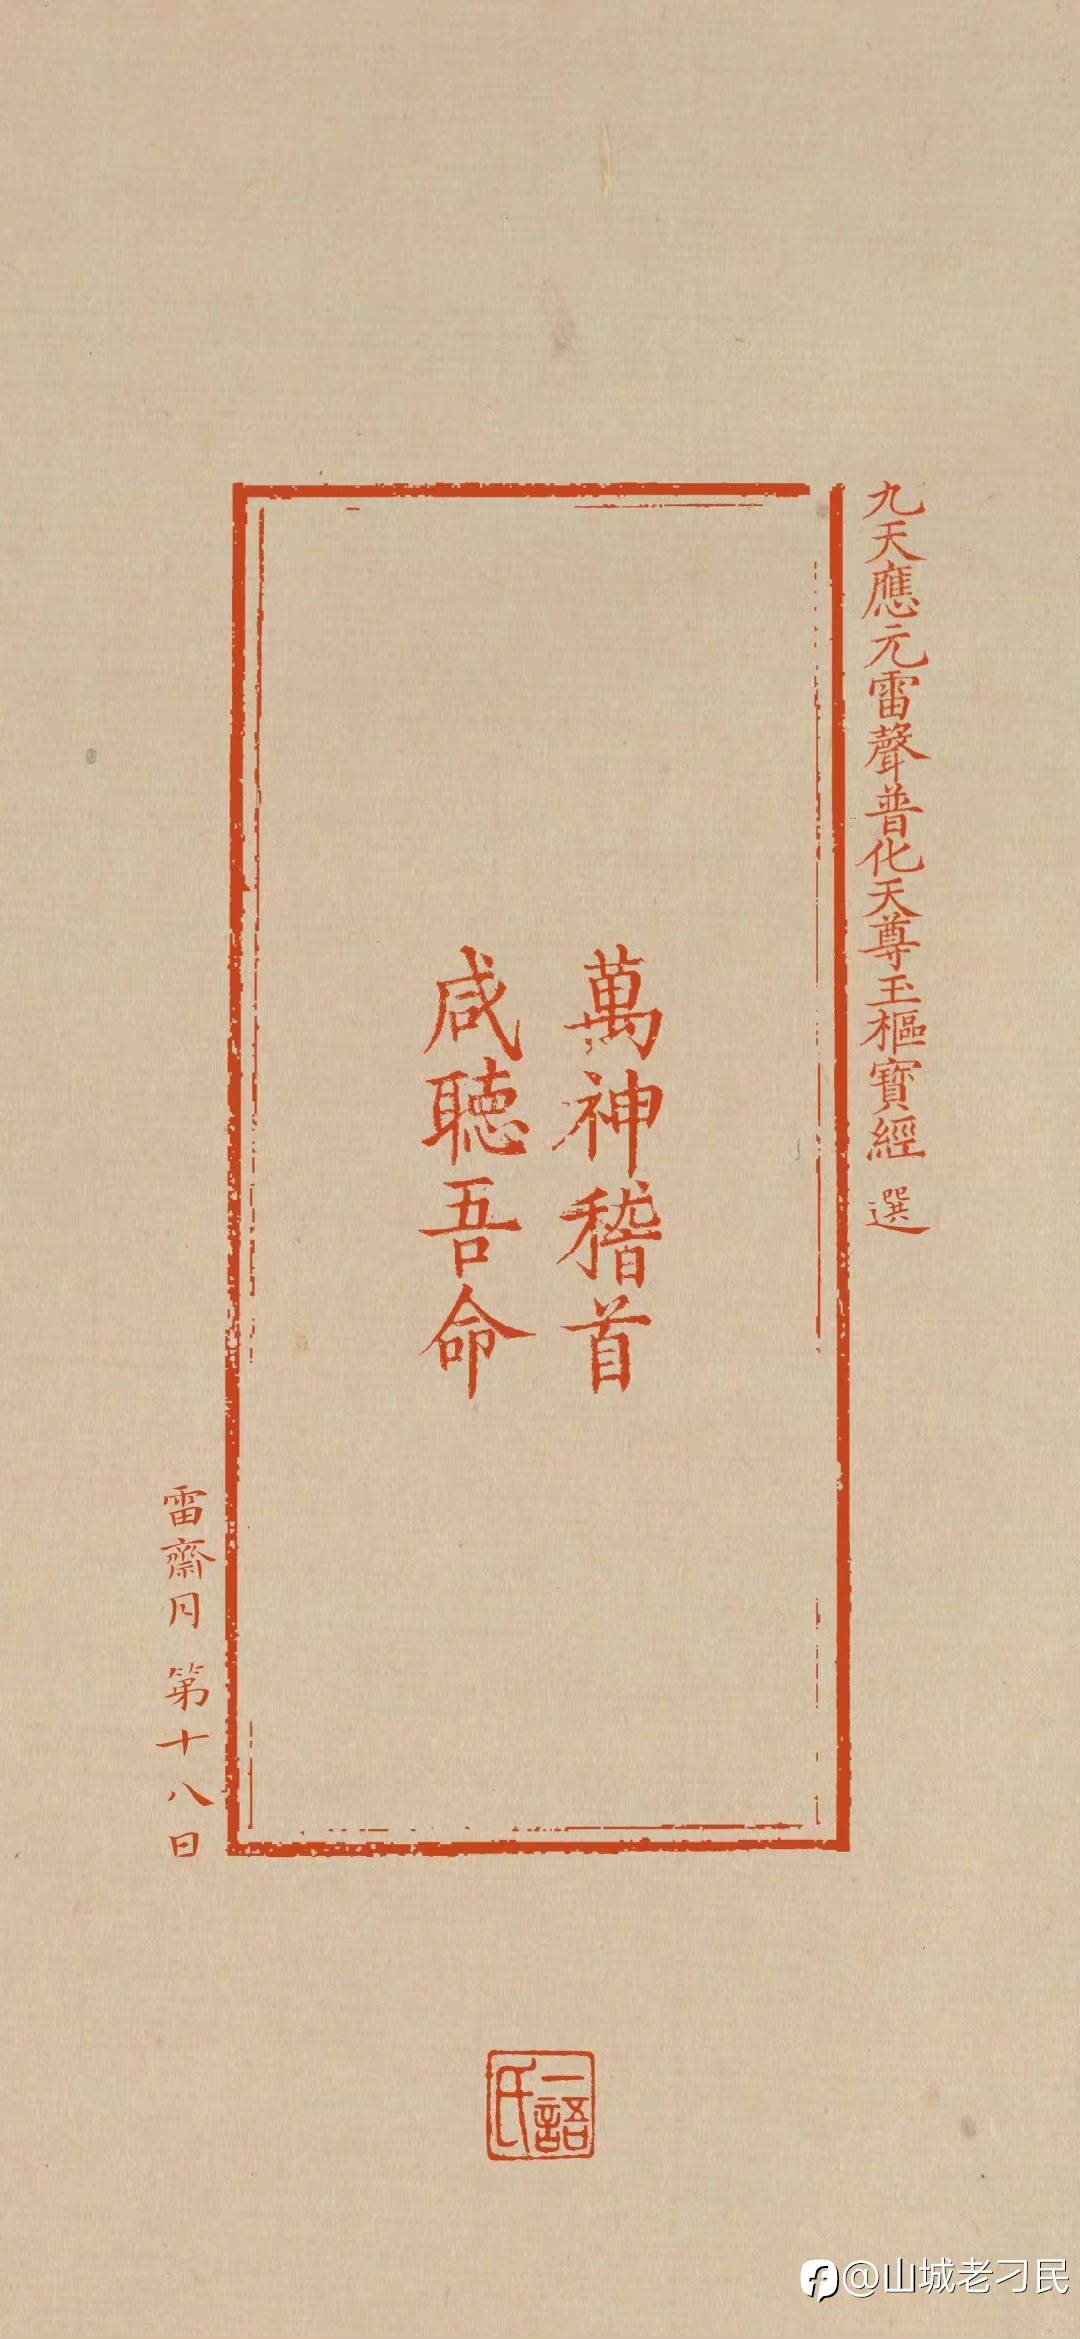 九天應元雷聲普化天尊玉樞寶經 選
萬神稽首
咸聽吾命
雷齋月 第十八日
一語氏
@山城老刁民